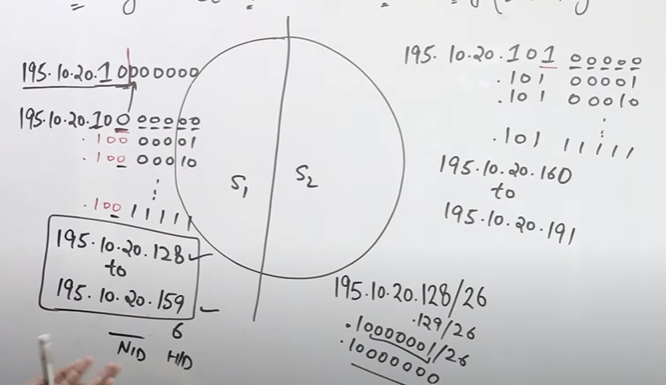 195.10.20.10000000
195.10.20.100 00000
.100 00001
.100 00010
.100 11111
195.10.20.128
to
195.10.20.159
6
NID HID
S1 S2
195.10.20.101 00000
.101 00001
.101 00010
.101 11111
195.10.20.160
to
195.10.20.191
195.10.20.128/26
.129/26
.10000001/26
.10000000